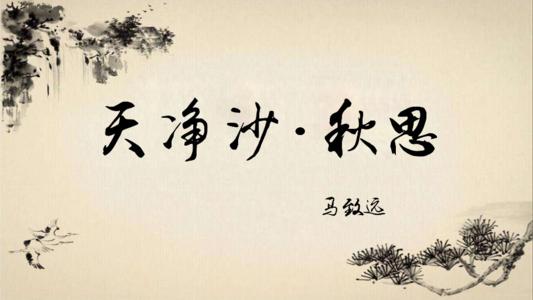 天净沙·秋思
马致远